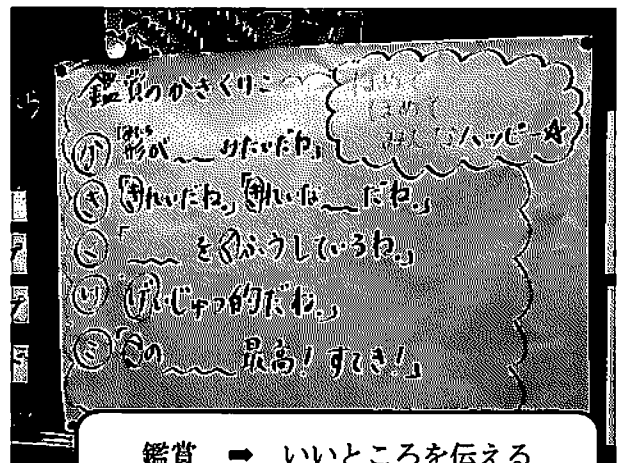 鑑賞のかきくけこ
ほめて
みんなハッピー☆
か 「形が＿＿みたいだね。」
き 「きれいだね。」「きれいな＿＿だね。」
く 「＿＿をくふうしているね。」
け 「げいじゅつ的だね。」
こ 「この＿＿最高！すてき！」
鑑賞 ➡ いいところを伝える